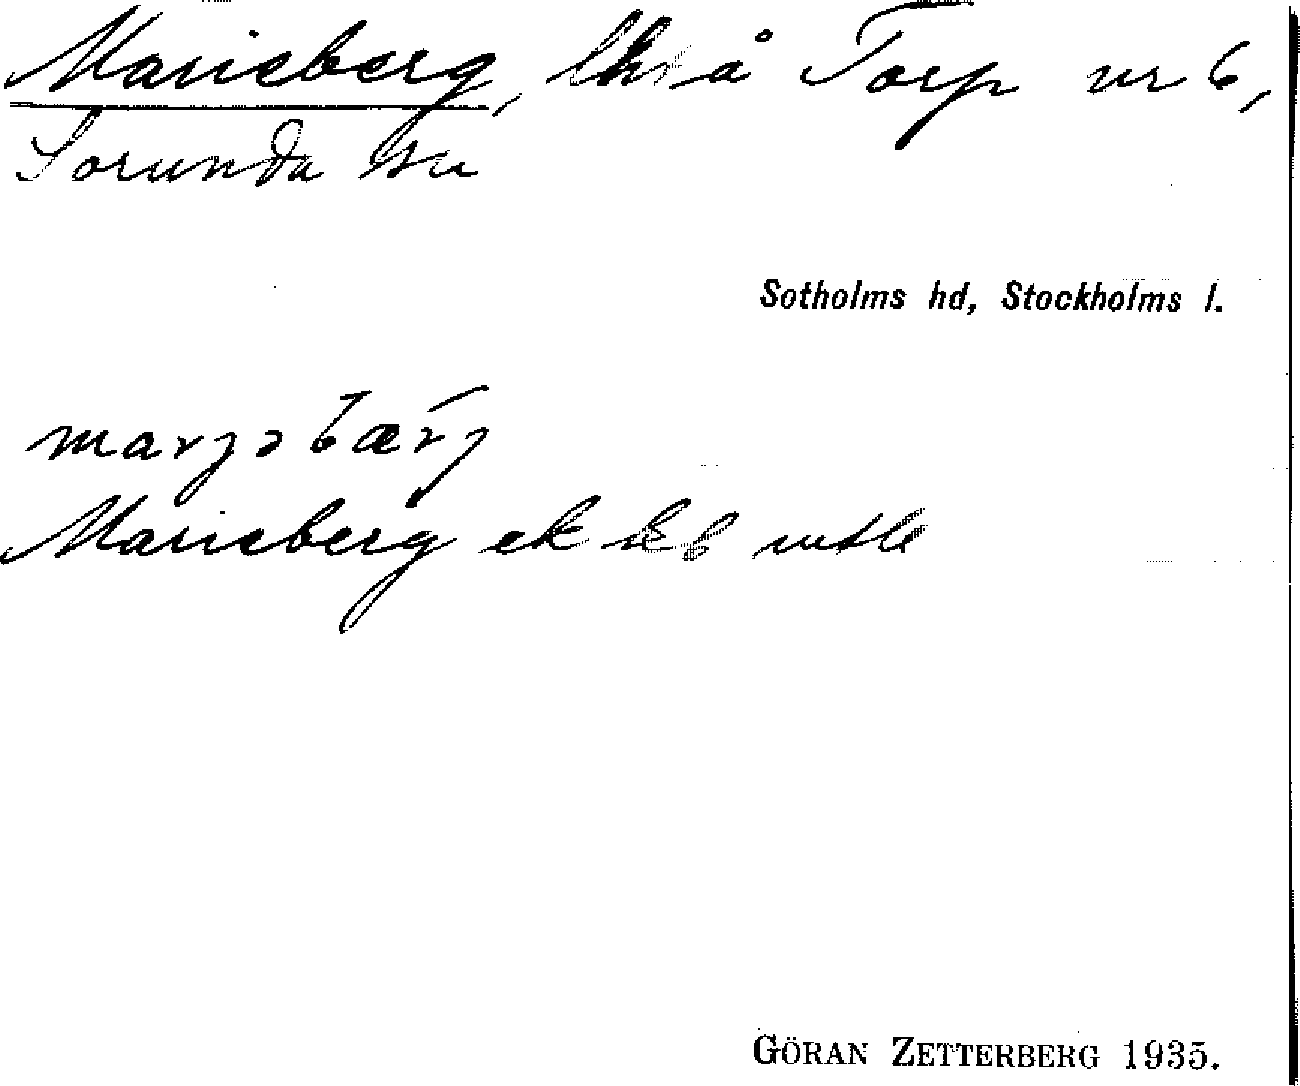 Marieberg, lht å Torp nr 6,
Sorunda sn
Sotholms hd, Stockholms l.
marjəbærj
Marieberg ek kbl
GÖRAN ZETTERBERG 1935.